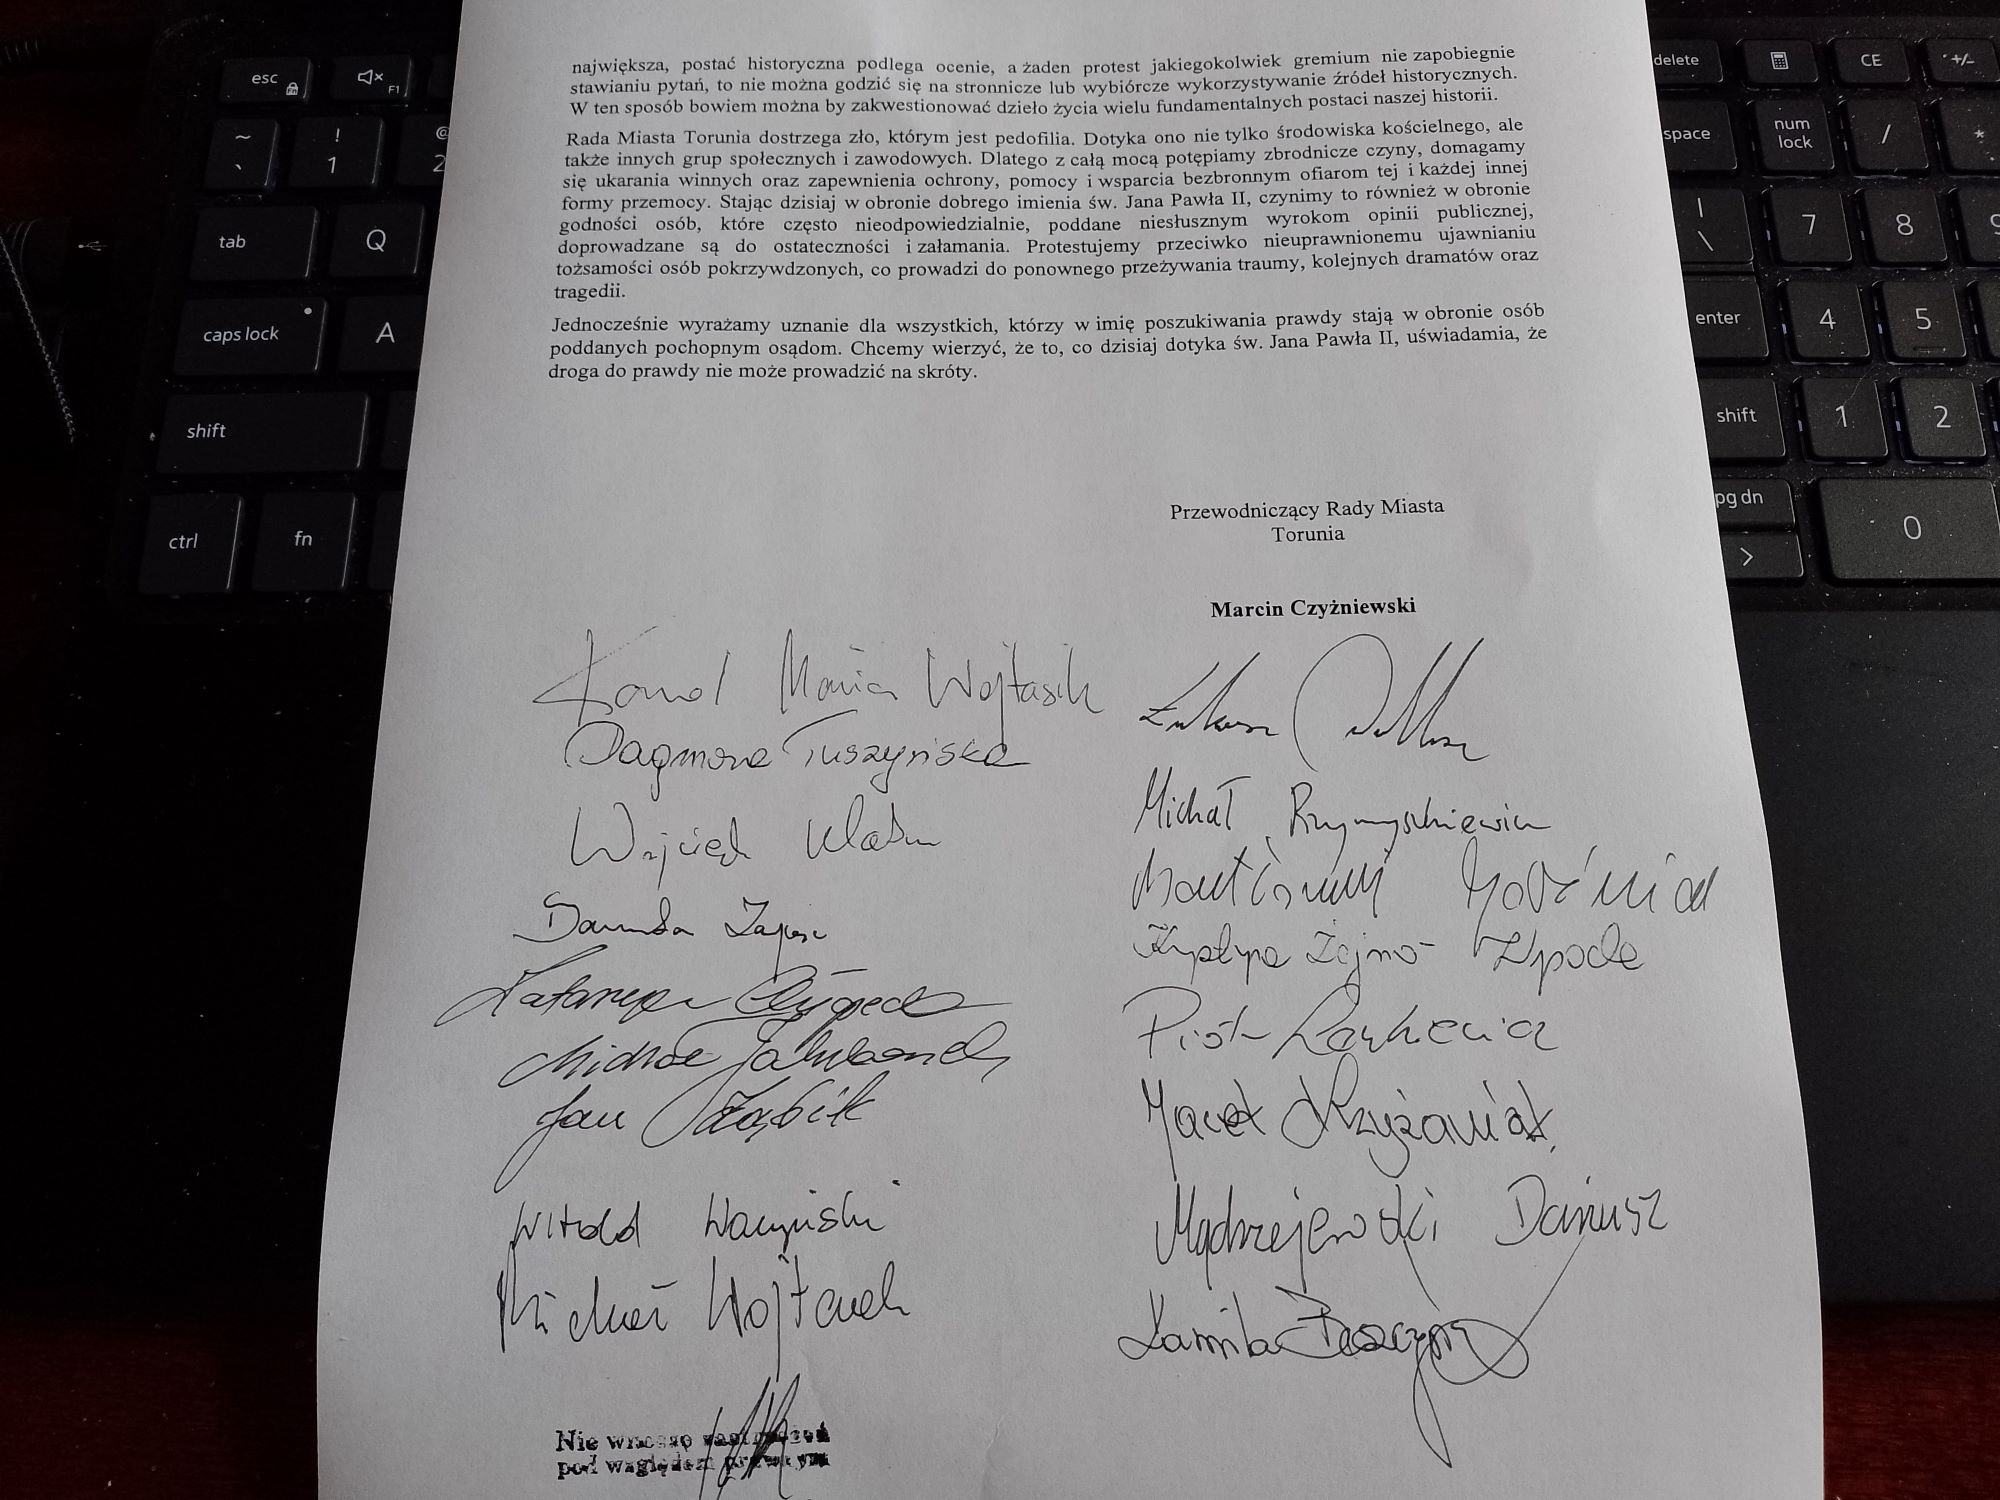 największa, postać historyczna podlega ocenie, a żaden protest jakiegokolwiek gremium nie zapobiegnie
stawianiu pytań, to nie można godzić się na stronnicze lub wybiórcze wykorzystywanie źródeł historycznych.
W ten sposób bowiem można by zakwestionować dzieło życia wielu fundamentalnych postaci naszej historii.
Rada Miasta Torunia dostrzega zło, którym jest pedofilia. Dotyka ono nie tylko środowiska kościelnego, ale
także innych grup społecznych i zawodowych. Dlatego z całą mocą potępiamy zbrodnicze czyny, domagamy
się ukarania winnych oraz zapewnienia ochrony, pomocy i wsparcia bezbronnym ofiarom tej i każdej innej
formy przemocy. Stając dzisiaj w obronie dobrego imienia św. Jana Pawła II, czynimy to również w obronie
godności osób, które często nieodpowiedzialnie, poddane niesłusznym wyrokom opinii publicznej,
doprowadzane są do ostateczności i załamania. Protestujemy przeciwko nieuprawnionemu ujawnianiu
tożsamości osób pokrzywdzonych, co prowadzi do ponownego przeżywania traumy, kolejnych dramatów oraz
tragedii.
Jednocześnie wyrażamy uznanie dla wszystkich, którzy w imię poszukiwania prawdy stają w obronie osób
poddanych pochopnym osądom. Chcemy wierzyć, że to, co dzisiaj dotyka św. Jana Pawła II, uświadamia, że
droga do prawdy nie może prowadzić na skróty.
Przewodniczący Rady Miasta
Torunia
Marcin Czyżniewski
Karol Maria Wojtasik
Dagmara Tuszyńska
Wojciech
Danuta Zając
Katarzyna
Michał Jakubaszek
Jan Ząbik
Witold
Michał Wojtczak
Łukasz
Michał Rzymyszkiewicz
Bartłomiej Jóźwiak
Krystyna Żejmo-Wysocka
Piotr
Jacek Krzyżaniak
Mądrzejewski Dariusz
Kamila
Nie wnoszę zastrzeżeń
pod względem prawnym
esc
F1
~
`
!
1
@
2
tab
Q
caps lock
A
shift
ctrl
fn
delete
CE
+/-
space
num
lock
/
*
|
\
7
8
9
enter
4
5
shift
1
2
pg dn
0
>